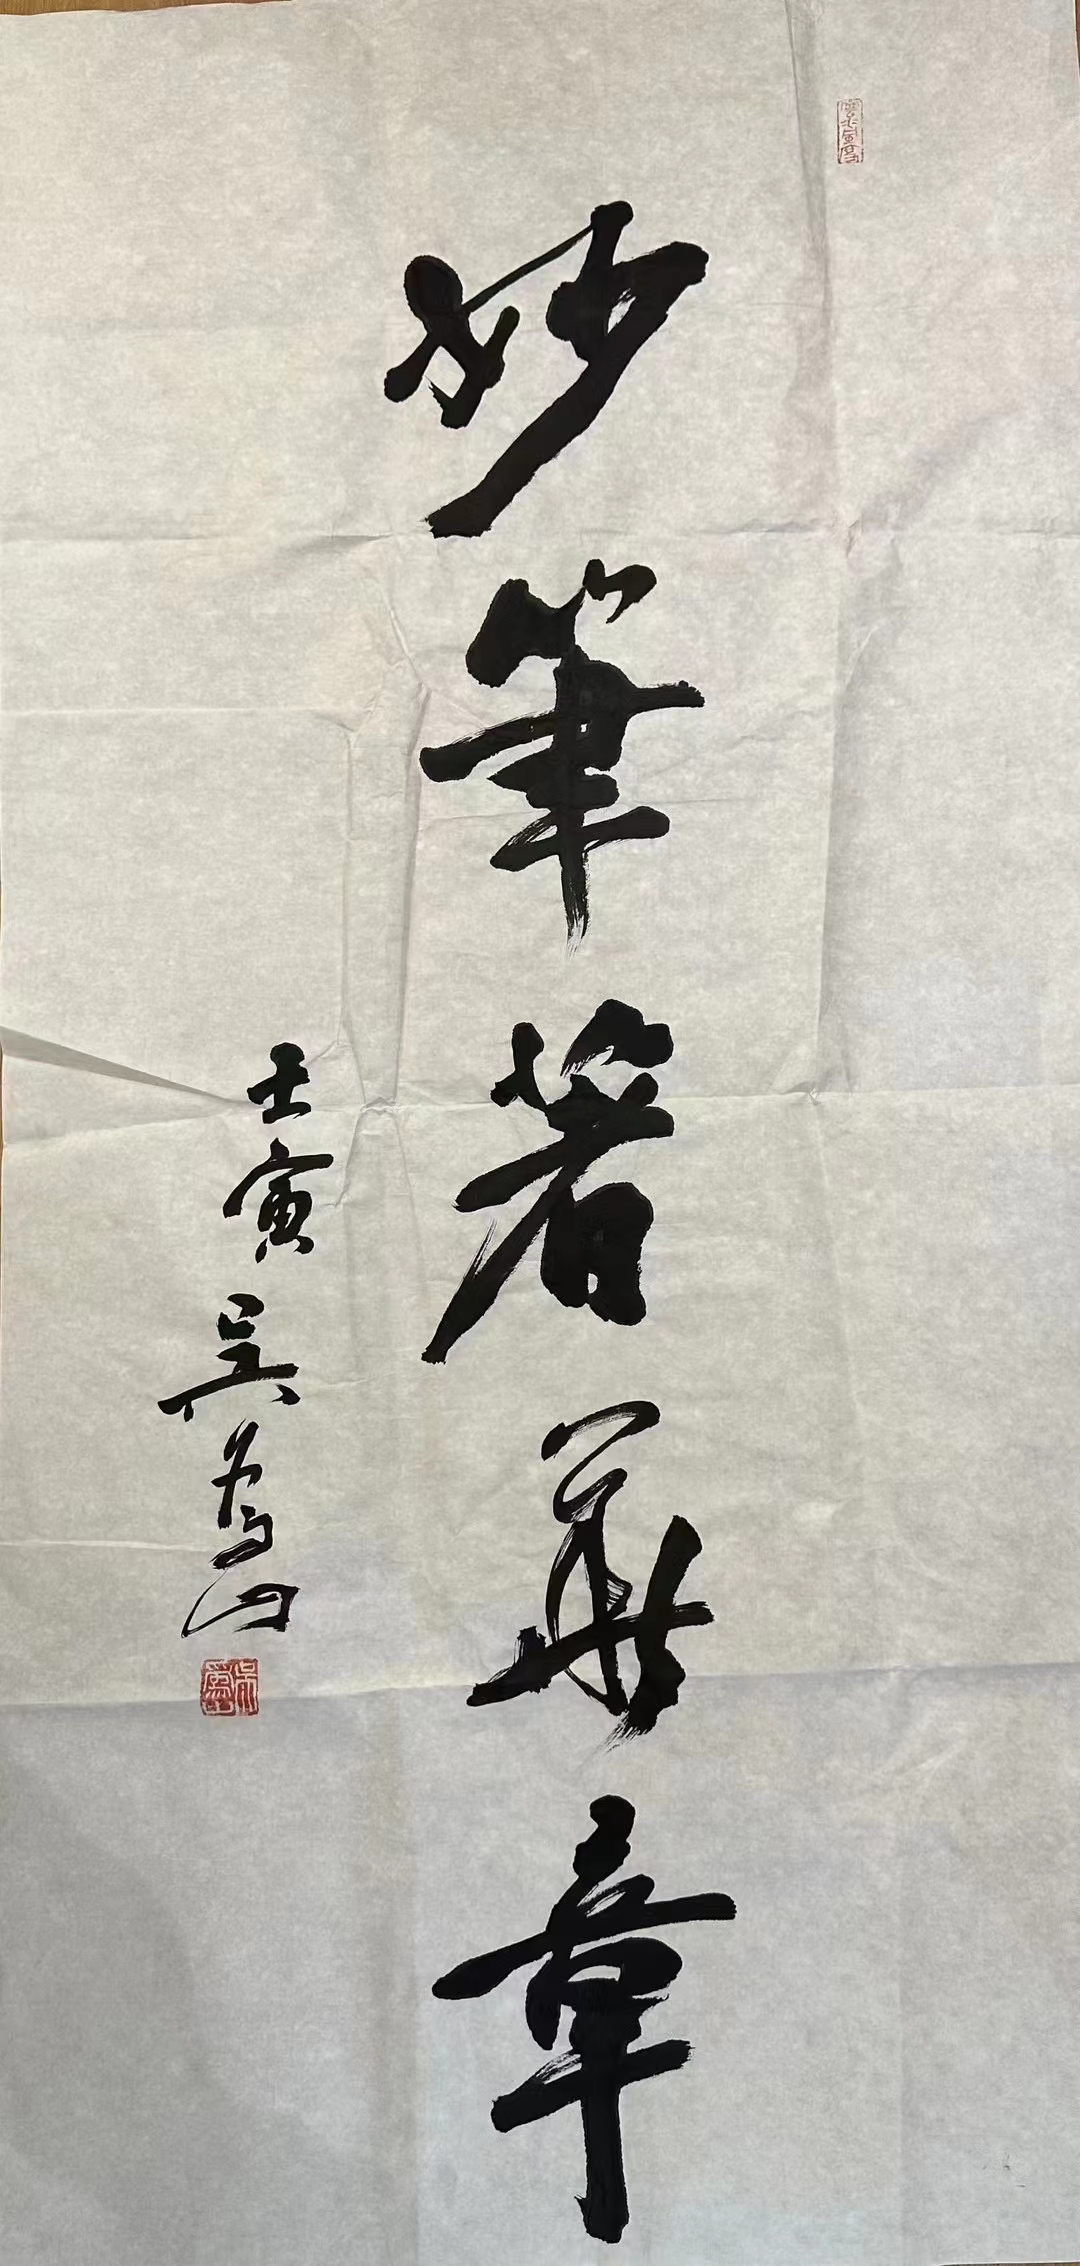 妙筆著華章
壬寅吳為山